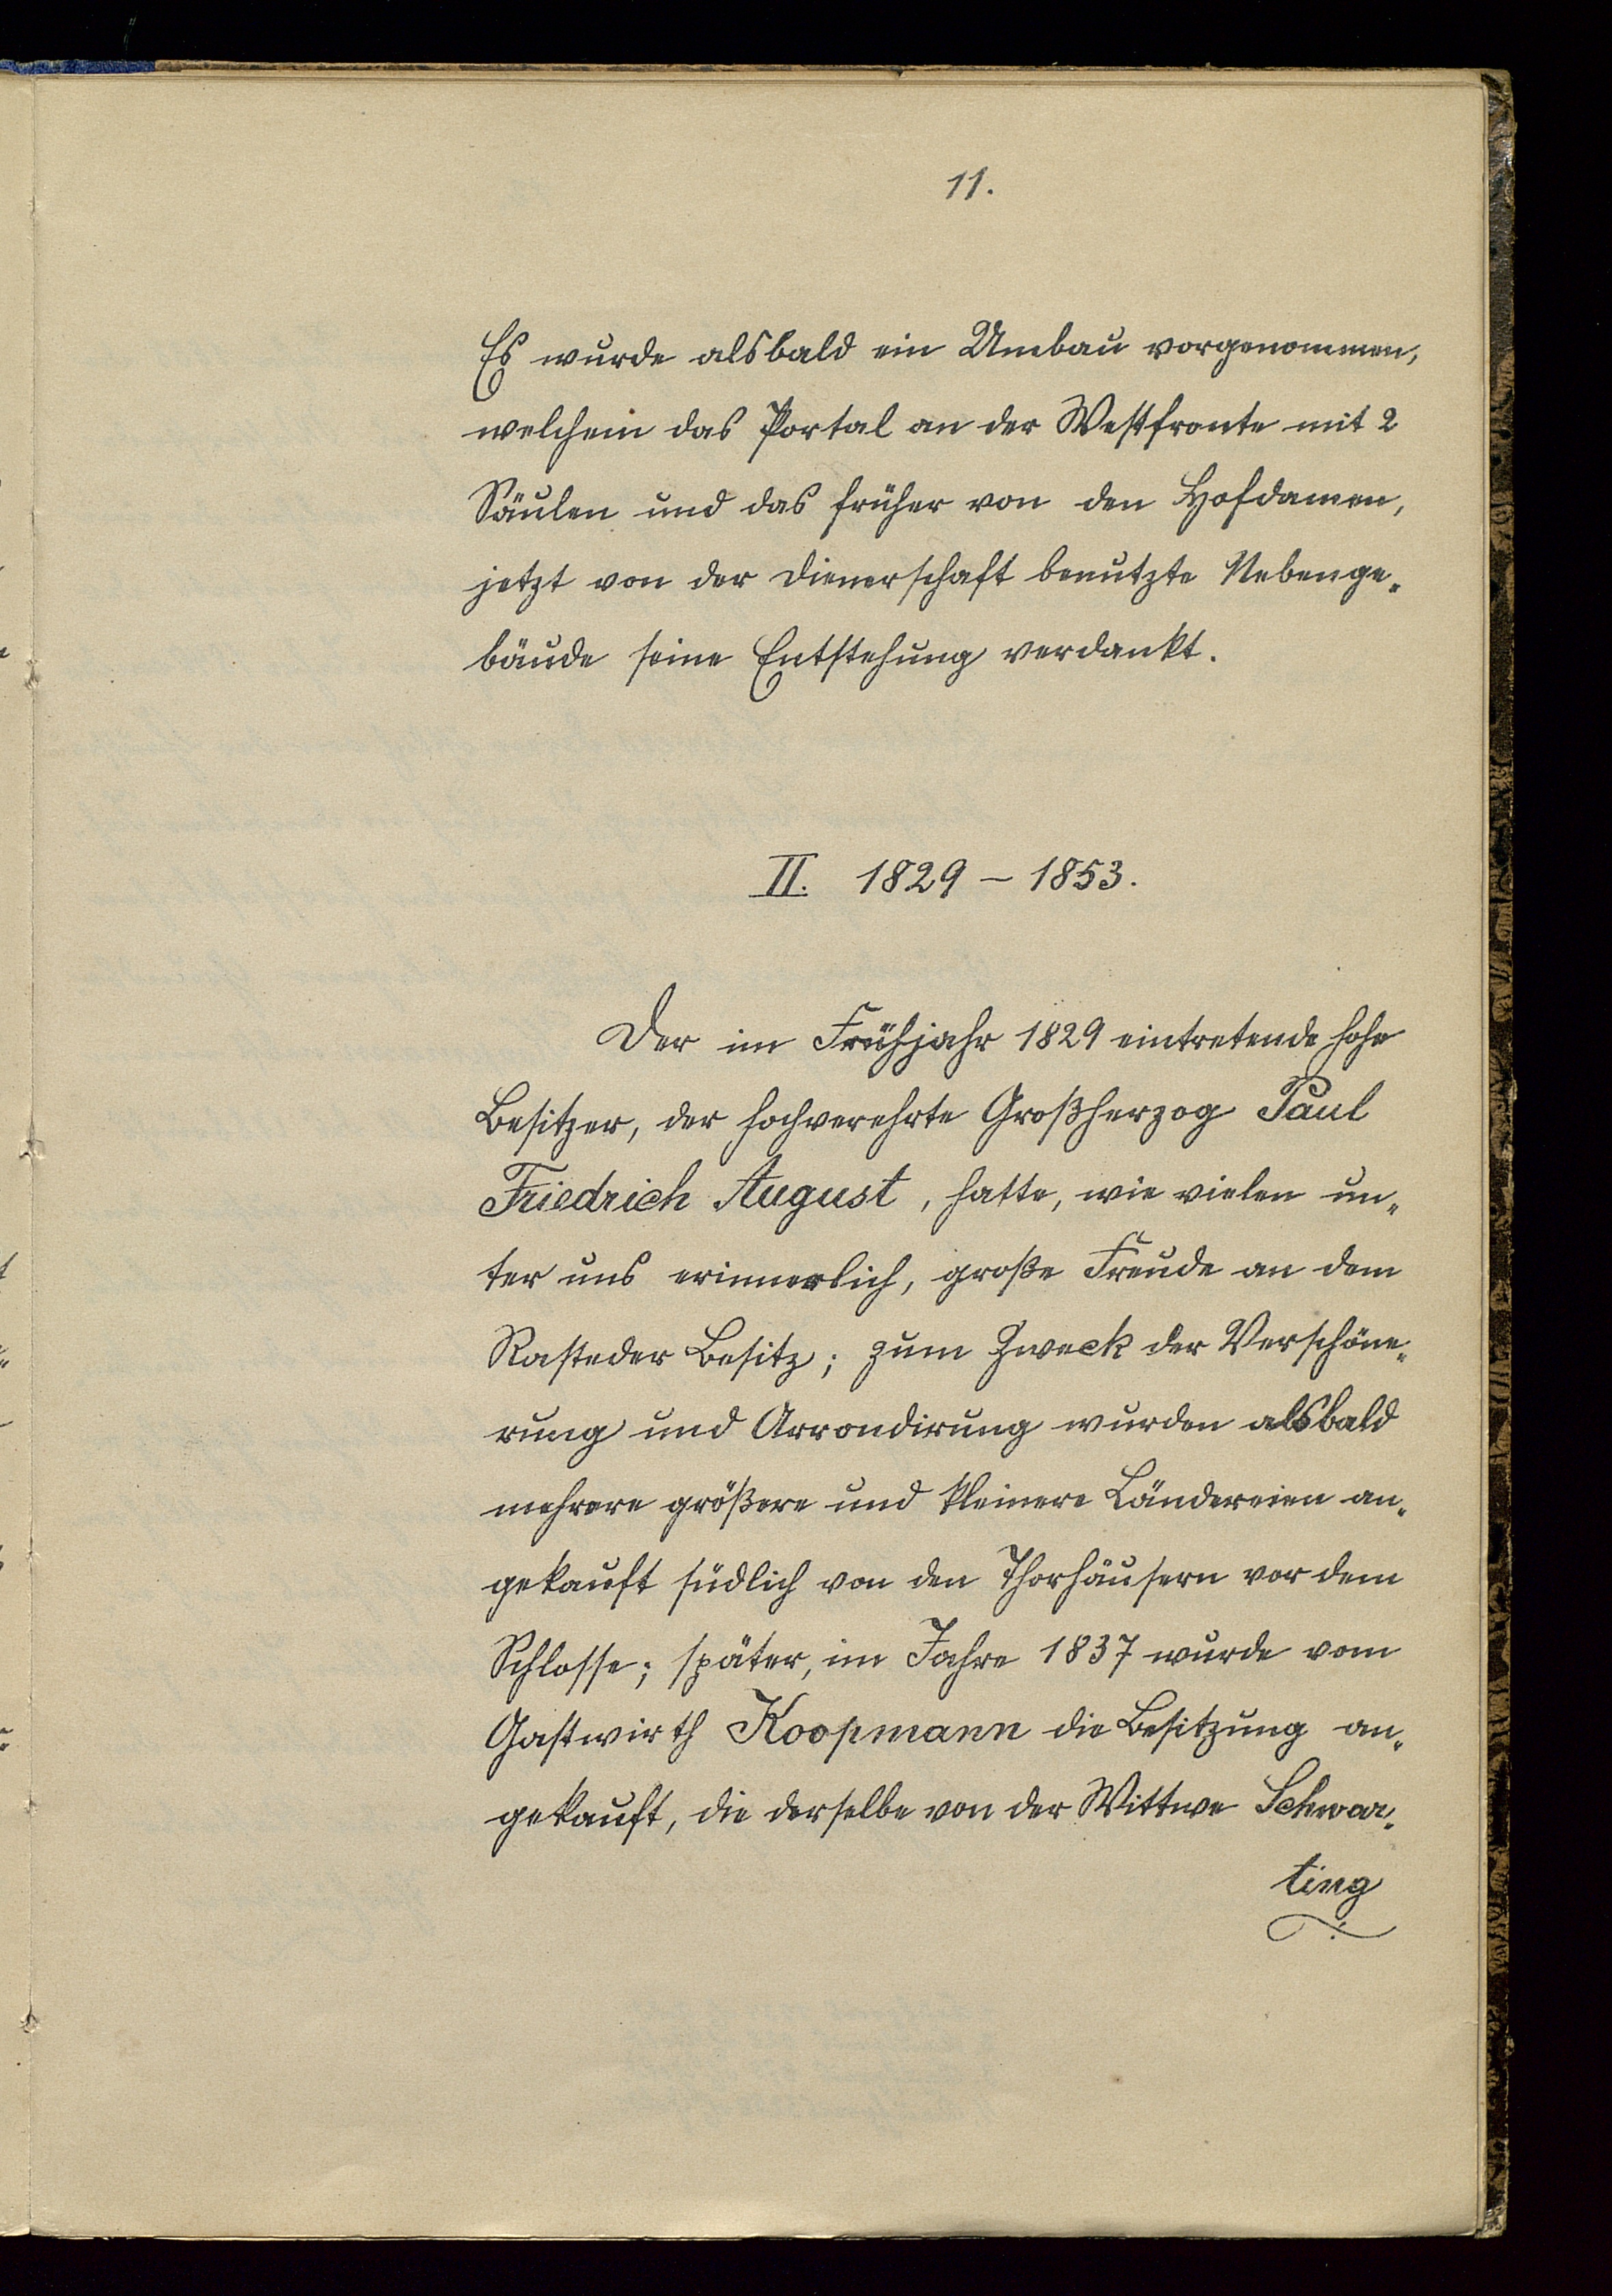 11.
Es wurde alsbald ein Umbau vorgenommen,
welchem das Portal an der Westfronte mit 2
Säulen und das früher von den Hofdamen,
jetzt von der Dienerschaft benutzte Nebenge-
bäude seine Entstehung verdankt.
II. 1829 – 1853.
Der im Frühjahr 1829 eintretende hohe
Besitzer, der hochverehrte Großherzog Paul
Friedrich August, hatte, wie vielen un-
ter uns erinnerlich, große Freude an dem
Rasteder Besitz; zum Zweck der Verschöne-
rung und Arrondirung wurden alsbald
mehrere größere und kleinere Ländereien an-
gekauft südlich von den Thorhäusern vor dem
Schlosse; später, im Jahre 1837 wurde vom
Gastwirth Koopmann die Besitzung an-
gekauft, die derselbe von der Wittwe Schwar-
ting